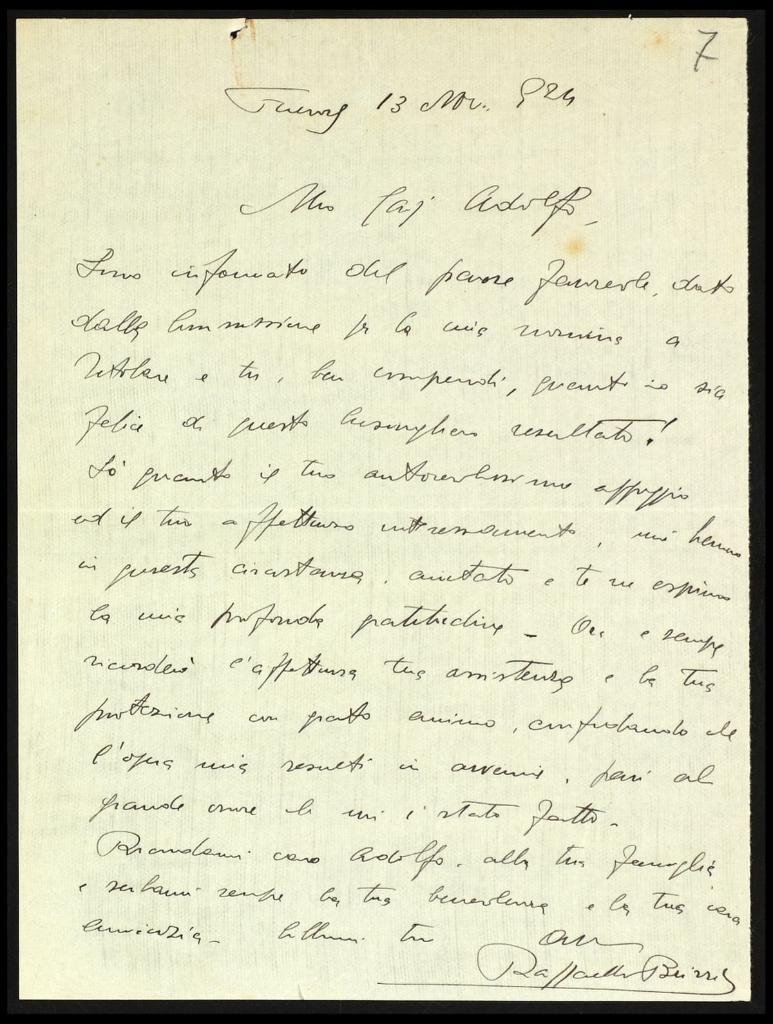 7
Firenze 13 Nov. 924
Mio Caro Adolfo,
Sono informato del parere favorevole, dato
dalla Commissione per la mia nomina a
titolare e tu, ben comprendi, quanto io sia
felice di questo lusinghiero resultato!
So quanto il tuo autorevolissimo appoggio
ed il tuo affettuoso interessamento, mi hanno
in questa circostanza, aiutato e te ne esprimo
la mia profonda gratitudine - Ora e sempre
ricorderò l'affettuosa tua assistenza e la tua
protezione con grato animo, confidando che
l'opera mia resulti in avvenire, pari al
grande onore che mi è stato fatto -
Ricordami caro Adolfo, alla tua famiglia
e serbami sempre la tua benevolenza e la tua cara
amicizia - tuo
Raffaello Brizzi